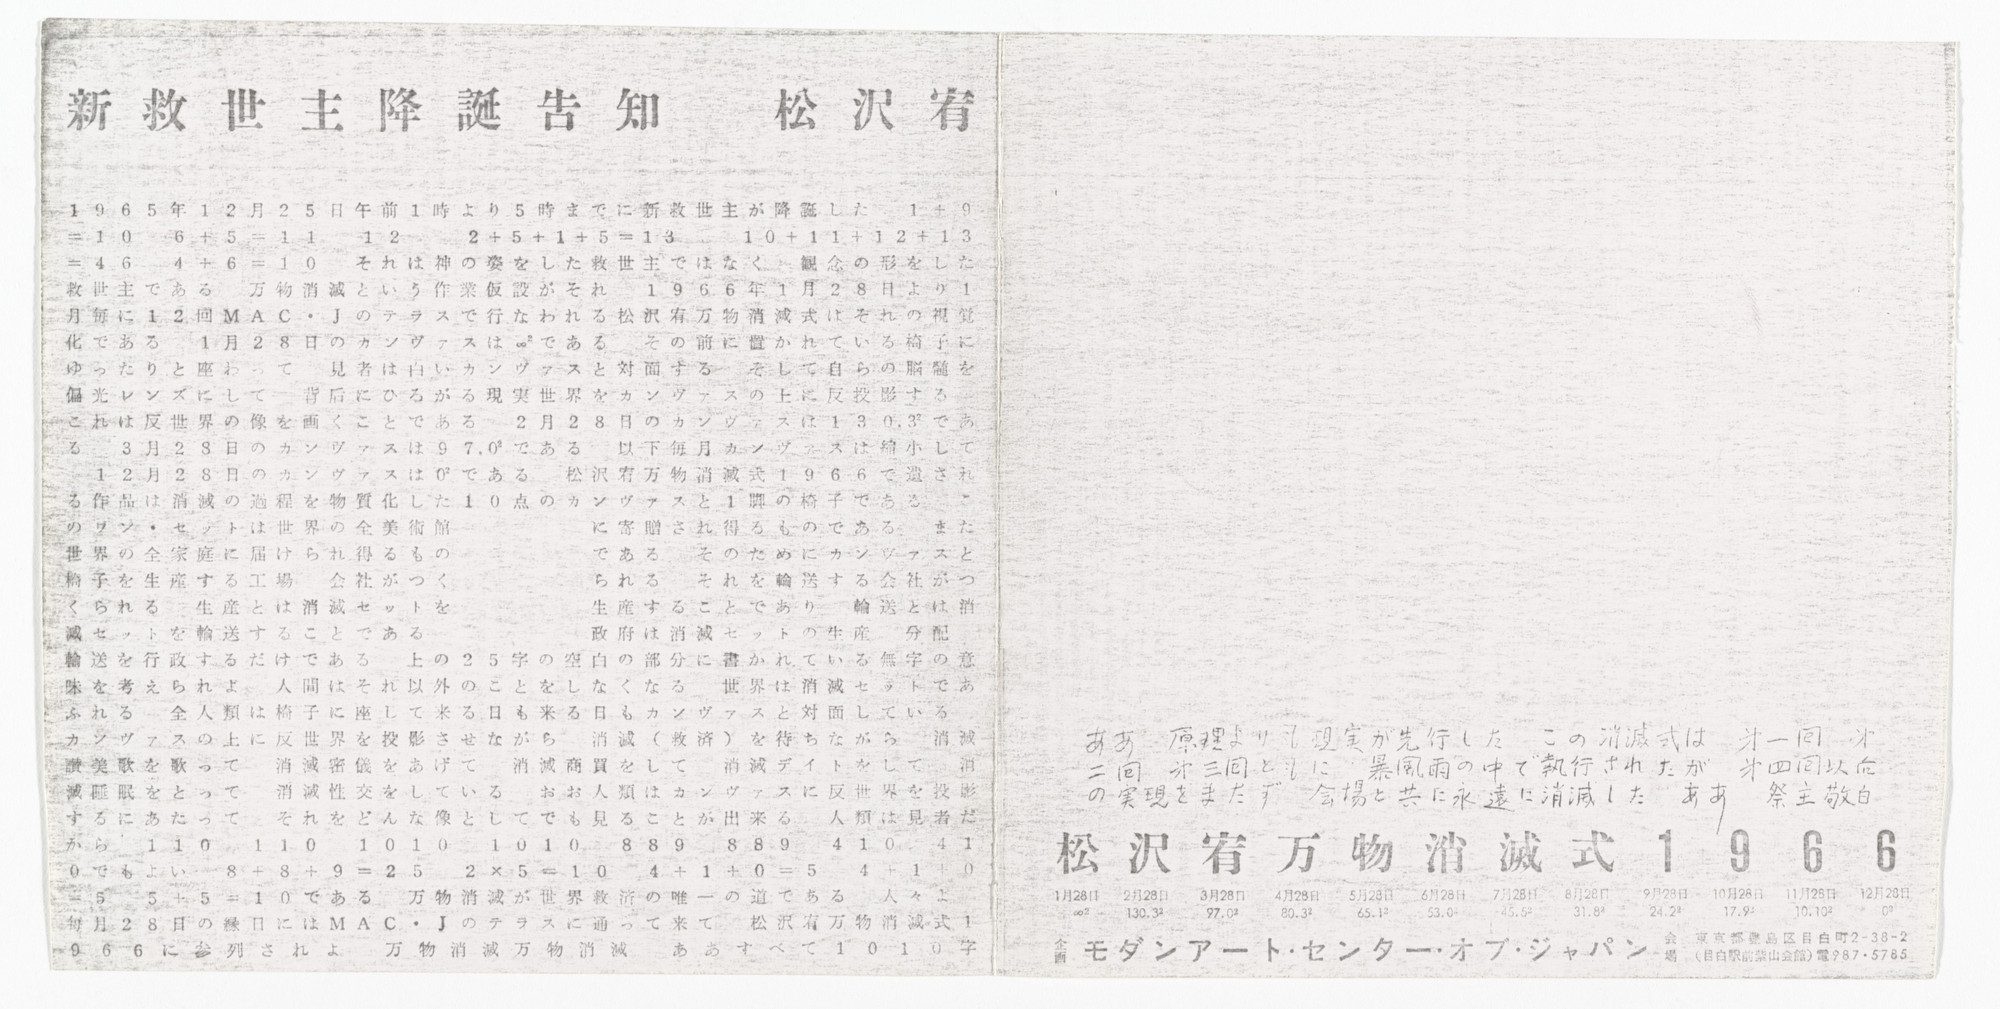 新救世主降誕告知　松沢宥
1965年12月25日午前1時より5時までに新救世主が降誕した　1+9
=10　6+5=11　12　2+5+1+5=13　10+11+12+13
=46　4+6=10　それは神の姿をした救世主ではなく　観念の形をした
救世主である　万物消滅という作業仮設がそれ　1966年1月28日より1
月毎に12回MAC・Jのテラスで行なわれる松沢宥万物消滅式はそれの視覚
化である　1月28日のカンヴァスは∞²である　その前に置かれている椅子に
ゆったりと座わって　見者は白いカンヴァスと対面する　そして自らの脳髄を
偏光レンズにして　背后にひろがる現実世界をカンヴァスの上に反投影する
これは反世界の像を画くことである　2月28日のカンヴァスは130.3²であ
る　3月28日のカンヴァスは97.0²である　以下毎月カンヴァスは縮小して
　12月28日のカンヴァスは0²である　松沢宥万物消滅式1966で遺され
る作品は消滅の過程を物質化した10点のカンヴァスと1脚の椅子である　こ
のワン・セットは世界の全美術館　に寄贈され得るものである　また
世界の全家庭に届けられ得るもの　である　そのためにカンヴァスと
椅子を生産する工場　会社がつく　られる　それを輸送する会社がつ
くられる　生産とは消滅セットを　生産することであり　輸送とは消
滅セットを輸送することである　政府は消滅セットの生産　分配
輸送を行政するだけである　上の25字の空白の部分に書かれている無字の意
味を考えられよ　人間はそれ以外のことをしなくなる　世界は消滅セットであ
ふれる　全人類は椅子に座して来る日も来る日もカンヴァスと対面している
カンヴァスの上に反世界を投影させながら　消滅（救済）を待ちながら　消滅
讃美歌を歌って　消滅密儀をあげて　消滅商買をして　消滅デイトをして　消
滅睡眠をとって　消滅性交をしている　おお人類はカンヴァスに反世界を投影
するにあたって　それをどんな像としてでも見ることが出来る　人類は見者だ
から　110　110　1010　1010　889　889　410　41
0でもよい　8+8+9=25　2×5=10　4+1+0=5　4+1+0
=5　5+5=10である　万物消滅が世界救済の唯一の道である　人々よ
毎月28日の縁日にはMAC・Jのテラスに通って来て　松沢宥万物消滅式1
966に参列されよ　万物消滅万物消滅　ああすべて1010字
ああ　原理よりも現実が先行した　この消滅式は　㐧一回　㐧
二回　㐧三回ともに　暴風雨の中で執行されたが　㐧四回以后
の実現をまたず　会場と共に永遠に消滅した　ああ　祭主敬白
松沢宥万物消滅式1966
1月28日　2月28日　3月28日　4月28日　5月28日　6月28日　7月28日　8月28日　9月28日　10月28日　11月28日　12月28日
∞²　130.3²　97.0²　80.3²　65.1²　53.0²　45.5²　31.8²　24.2²　17.9²　10.10²　0²
企画　モダンアート・センター・オブ・ジャパン　会場　東京都豊島区目白町2-38-2
（目白駅前葉山会館）電987・5785